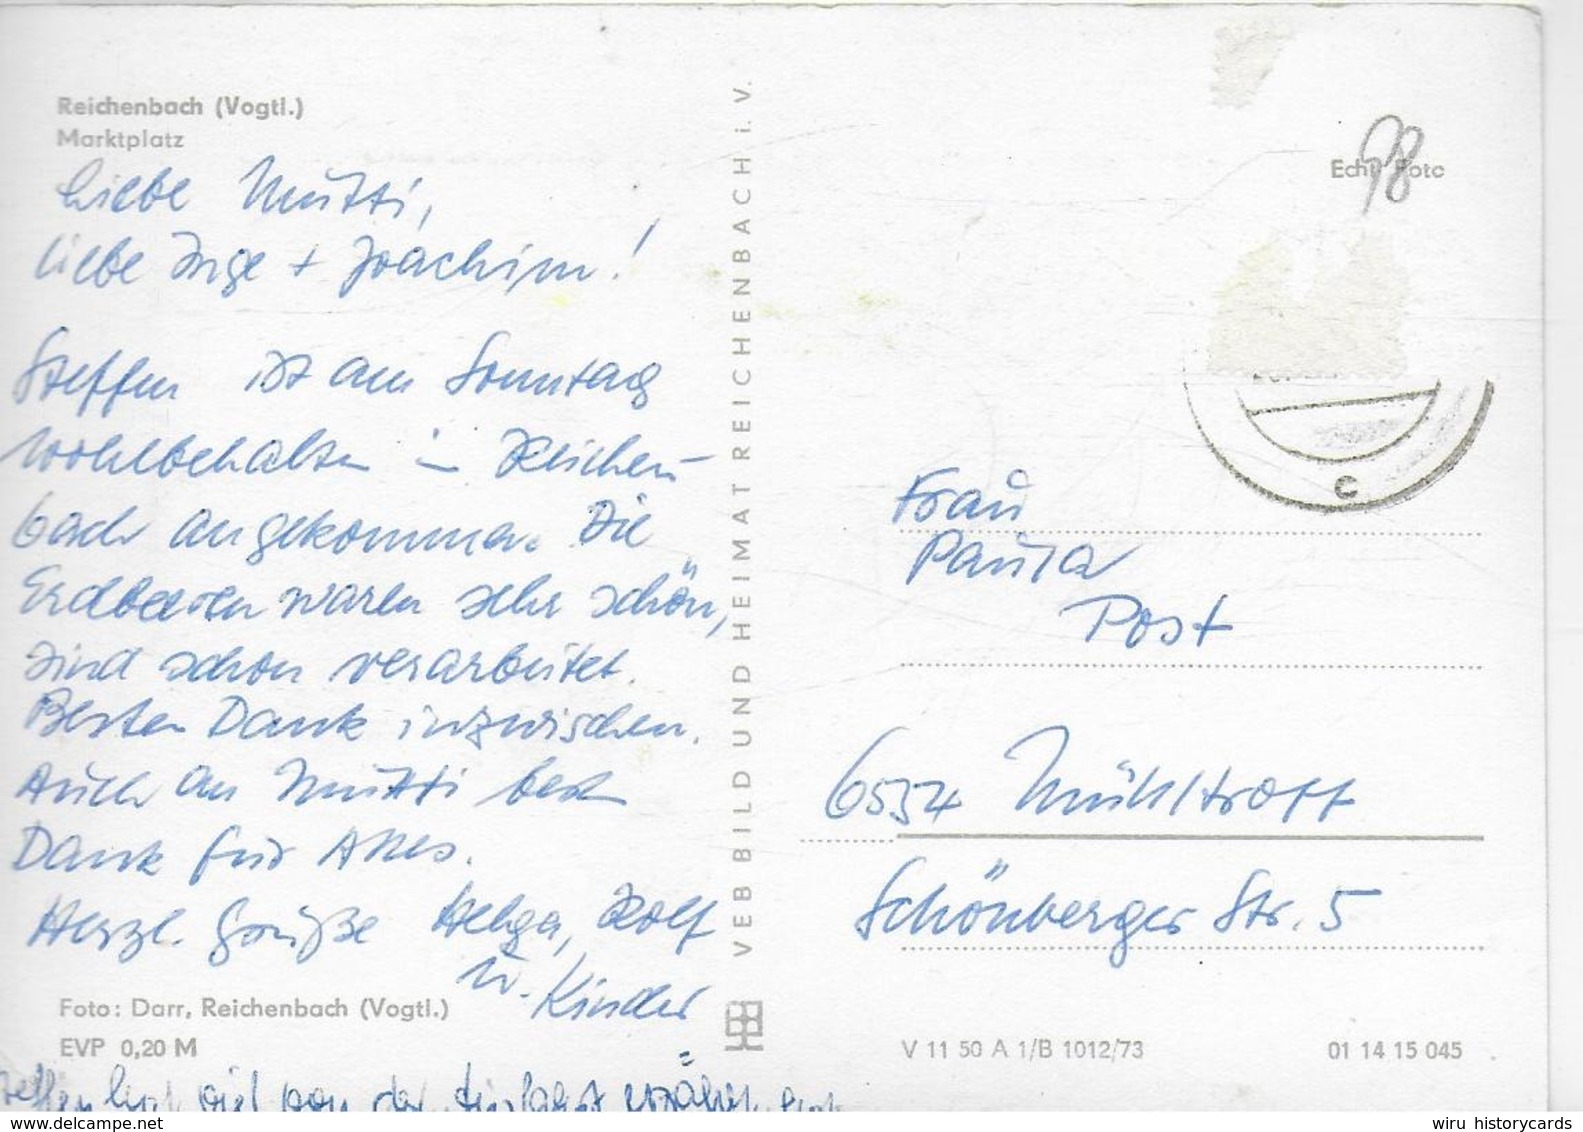 Reichenbach (Vogtl.)
Marktplatz
Liebe Mutti,
liebe Inge + Joachim!
Steffen ist am Sonntag
wohlbehalten in Reichen-
bach angekommen. Die
Erdbeeren waren sehr schön,
sind schon verarbeitet.
Besten Dank inzwischen.
Auch an Mutti besten
Dank für Alles.
Herzl. Grüße Helga, Rolf
u. Kinder
Foto: Darr, Reichenbach (Vogtl.)
EVP 0,20 M
Steffen hat viel von der erzählt
VEB BILD UND HEIMAT REICHENBACH i. V.
98
Echt Foto
c
Frau
Paula
Post
6554 Mühltroff
Schönberger Str. 5
V 11 50 A 1/B 1012/73
01 14 15 045
wiru historycards
www.delcampe.net